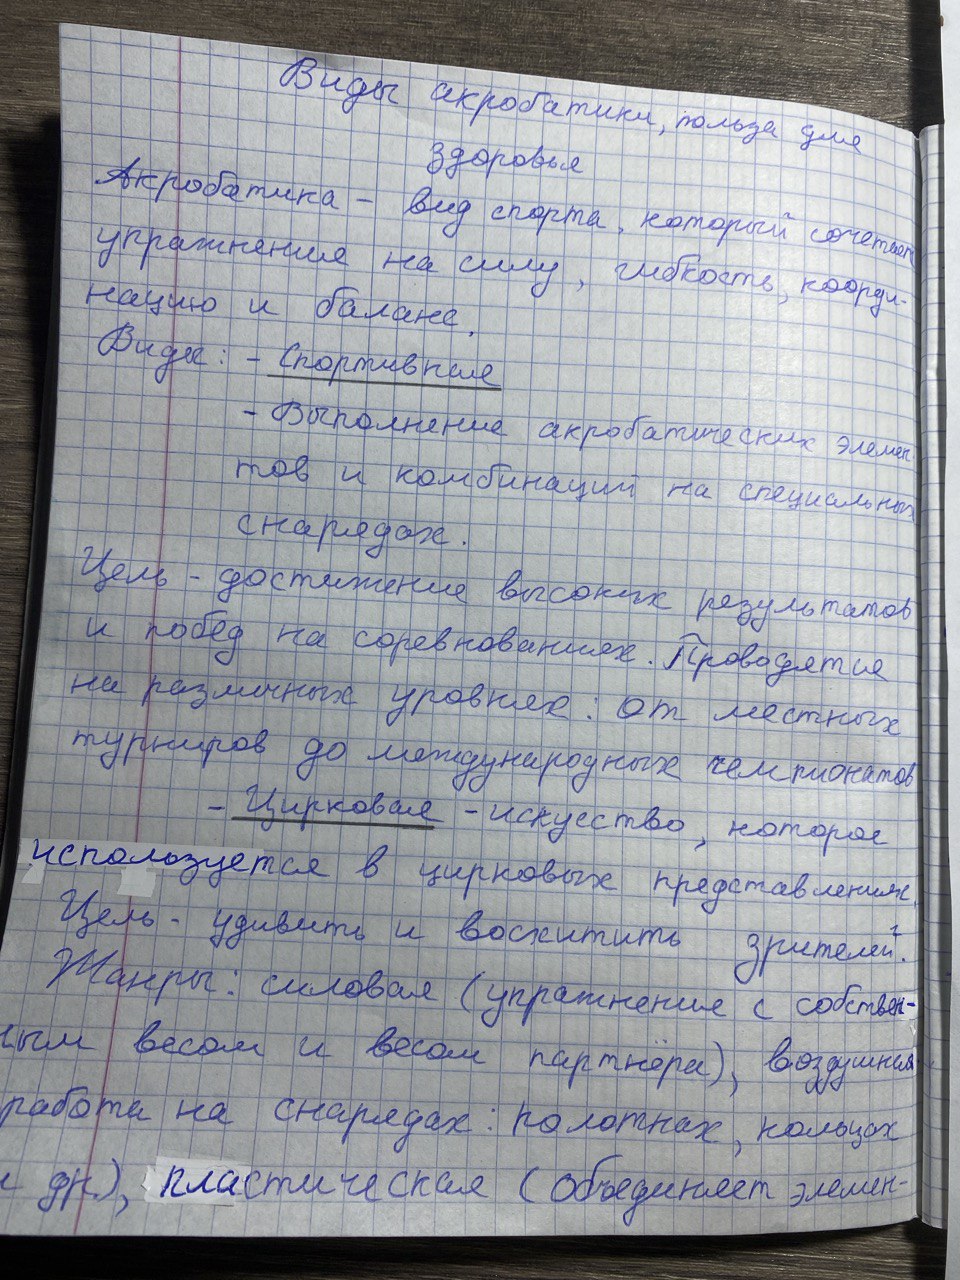 Виды акробатики, польза для
здоровья
Акробатика - вид спорта, который сочетает
упражнения на силу, гибкость, коорди-
нацию и баланс.
Виды: - Спортивная
- Выполнение акробатических элемен
тов и комбинаций на специальных
снарядах.
Цель - достижение высоких результатов
и побед на соревнованиях. Проводятся
на различных уровнях: от местных
турниров до международных чемпионатов
- Цирковая - искусство, которое
используется в цирковых представлениях.
Цель - удивить и восхитить зрителей.
Жанры: силовая (упражнения с собствен-
ным весом и весом партнёра), воздушная
работа на снарядах: полотнах, кольцах
и др.), пластическая (объединяет элемен-